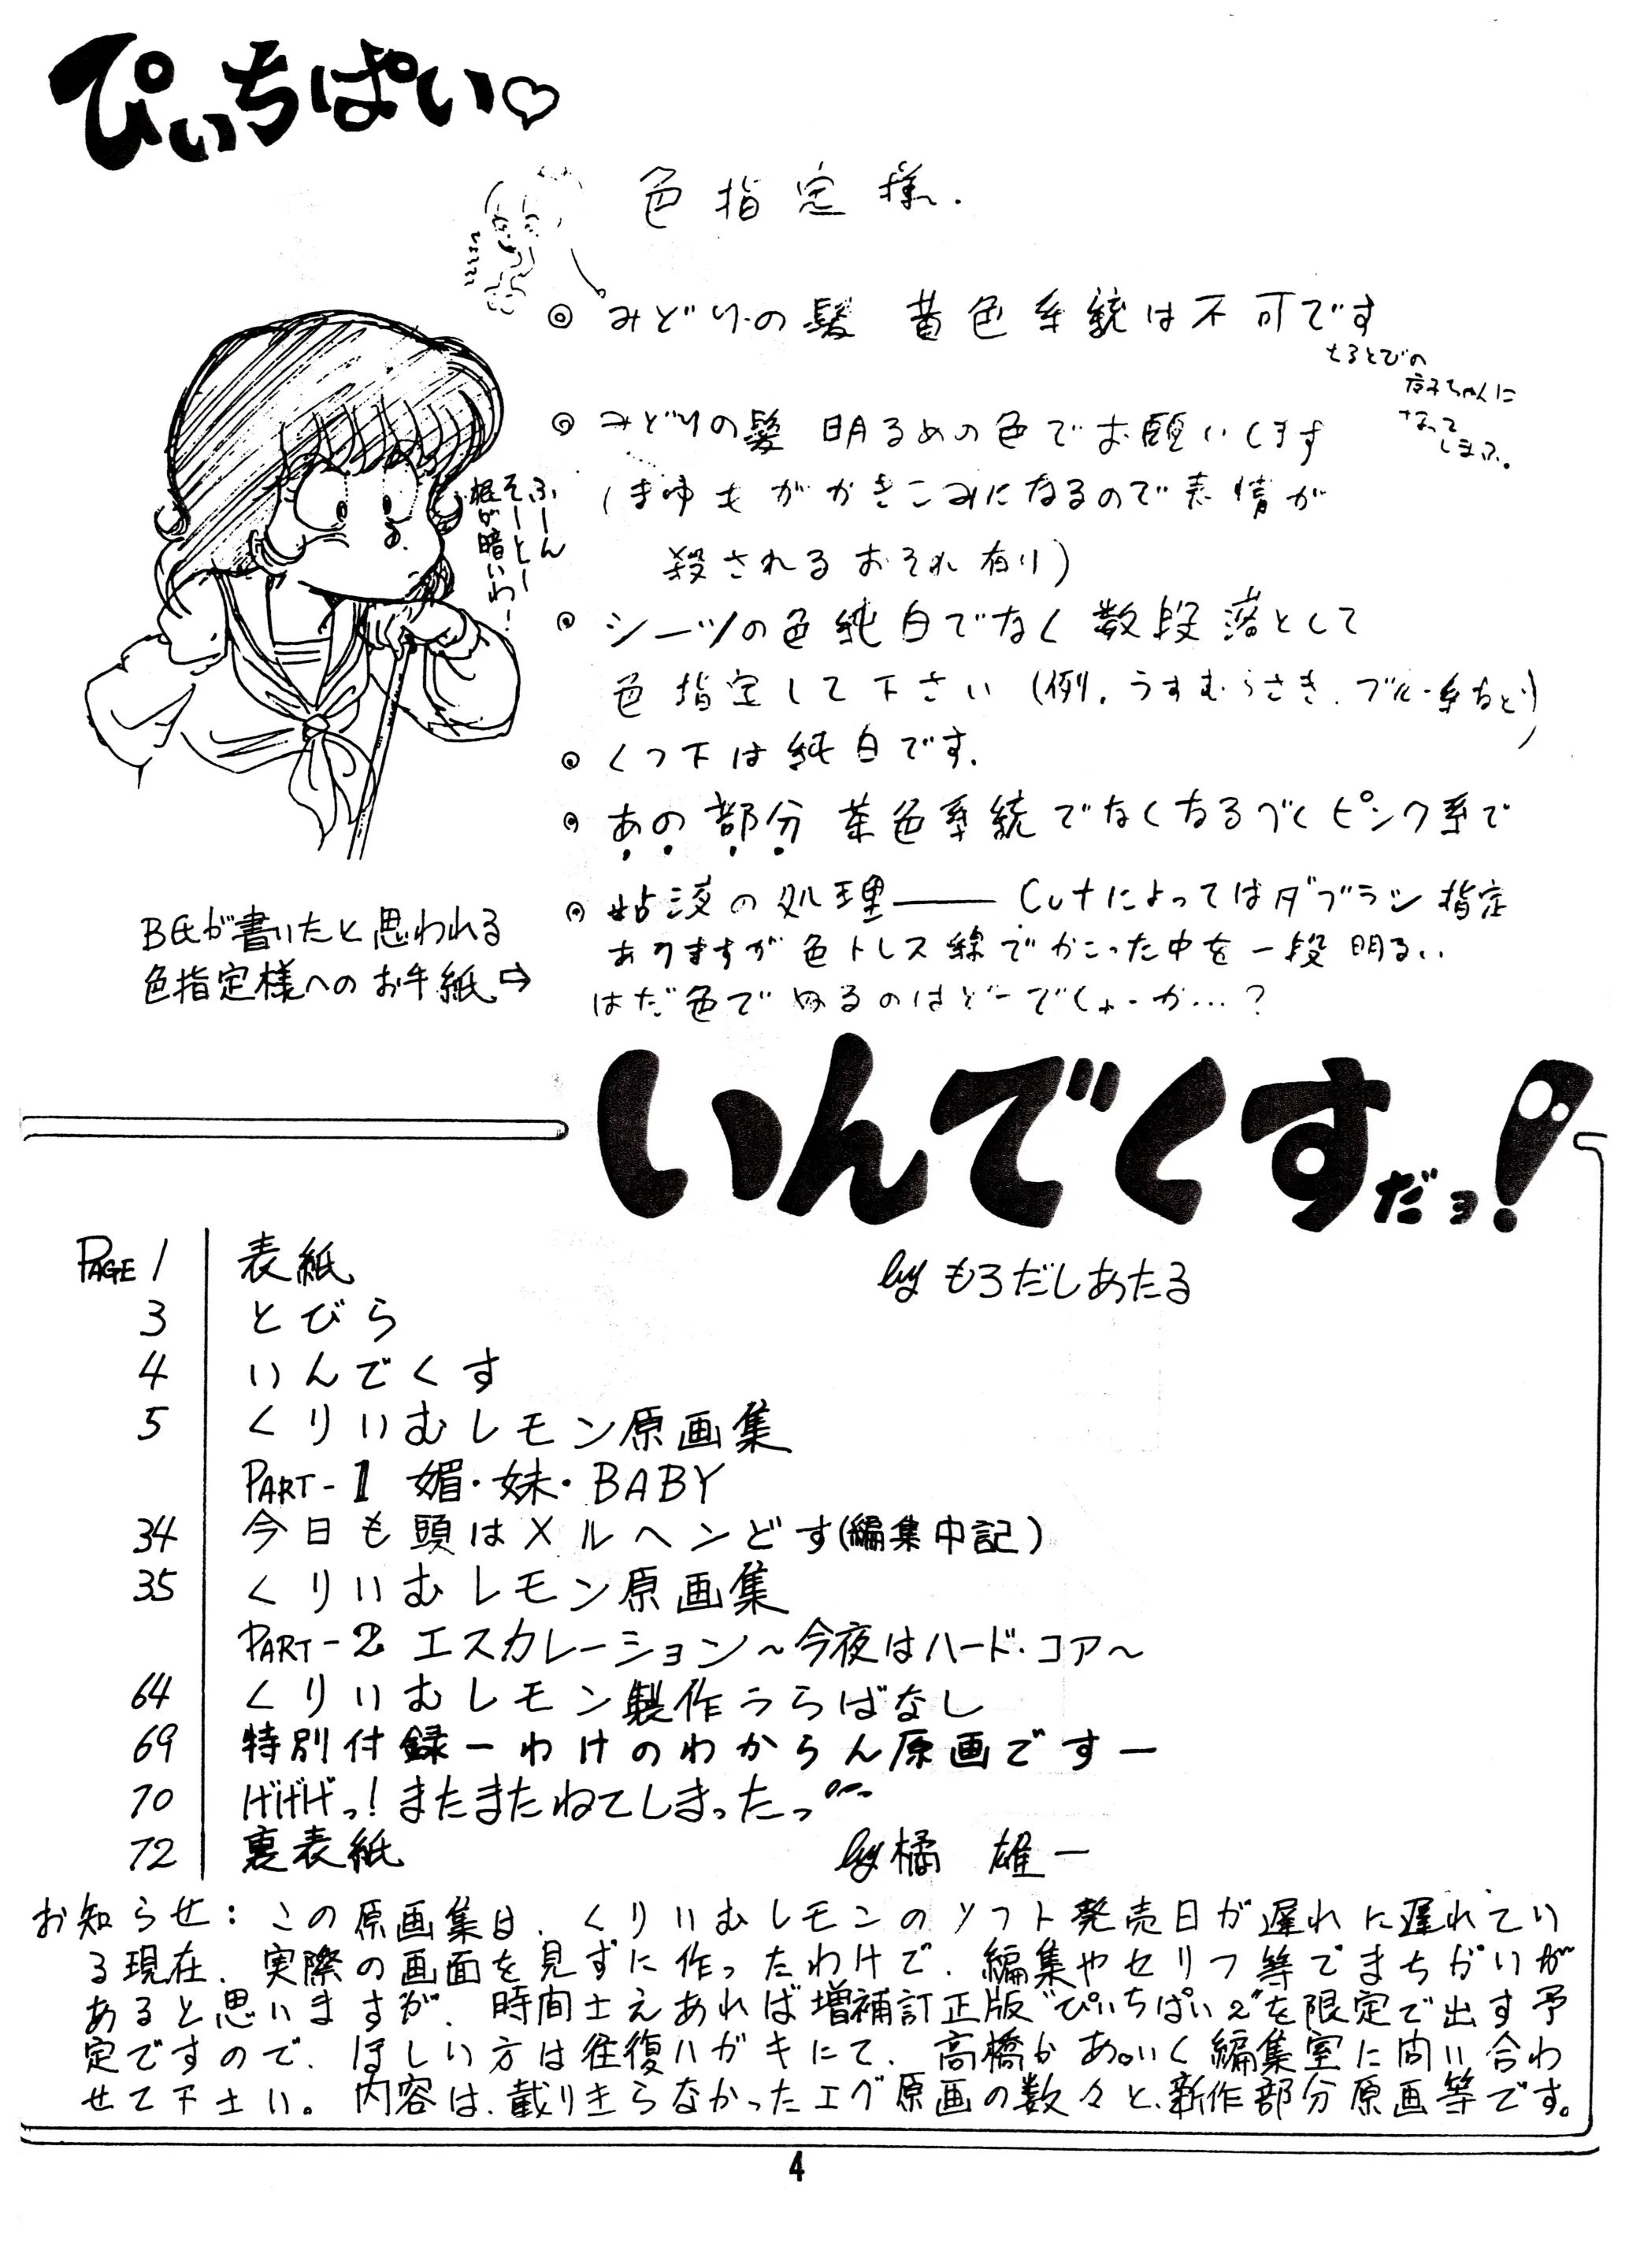 ぴいちぱい♡
色指定様.
◎ みどりの髪 黄色系統は不可です
になって
しまふ。
◎ みどりの髪 明るめの色でお願いします
(まゆもがかきこみになるので表情が
殺されるおそれ有り)
◎ シーツの色純白でなく数段落として
色指定して下さい (例. うすむらさき. ブルー系など)
◎ くつ下は純白です.
◎ あの部分 茶色系統でなくなるべくピンク系で
◎ 粘液の処理—— Cutによってはダブラシ指定
ありますが色トレス線でかこった中を一段明るい
はだ色でぬるのはどーでしょーか…?
ふーん
そーとー
根が暗いわ!
B氏が書いたと思われる
色指定様へのお手紙⇨
いんでくすだョ!
by もろだしあたる
PAGE 1 表紙
3 とびら
4 いんでくす
5 くりいむレモン原画集
PART-1 媚・妹・BABY
34 今日も頭はメルヘンどす(編集中記)
35 くりいむレモン原画集
PART-2 エスカレーション〜今夜はハード・コア〜
64 くりいむレモン製作うらばなし
69 特別付録ーわけのわからん原画ですー
70 げげげっ!またまたねてしまったっ
72 裏表紙
by 橘 雄一
お知らせ: この原画集は、くりいむレモンのソフト発売日が遅れに遅れてい
る現在、実際の画面を見ずに作ったわけで、編集やセリフ等でまちがいが
あると思いますが、時間さえあれば増補訂正版“ぴいちぱい2”を限定で出す予
定ですので、ほしい方は往復ハガキにて、高橋かあいく編集室に問い合わ
せて下さい。内容は、載りきらなかったエグ原画の数々と、新作部分原画等です。
4